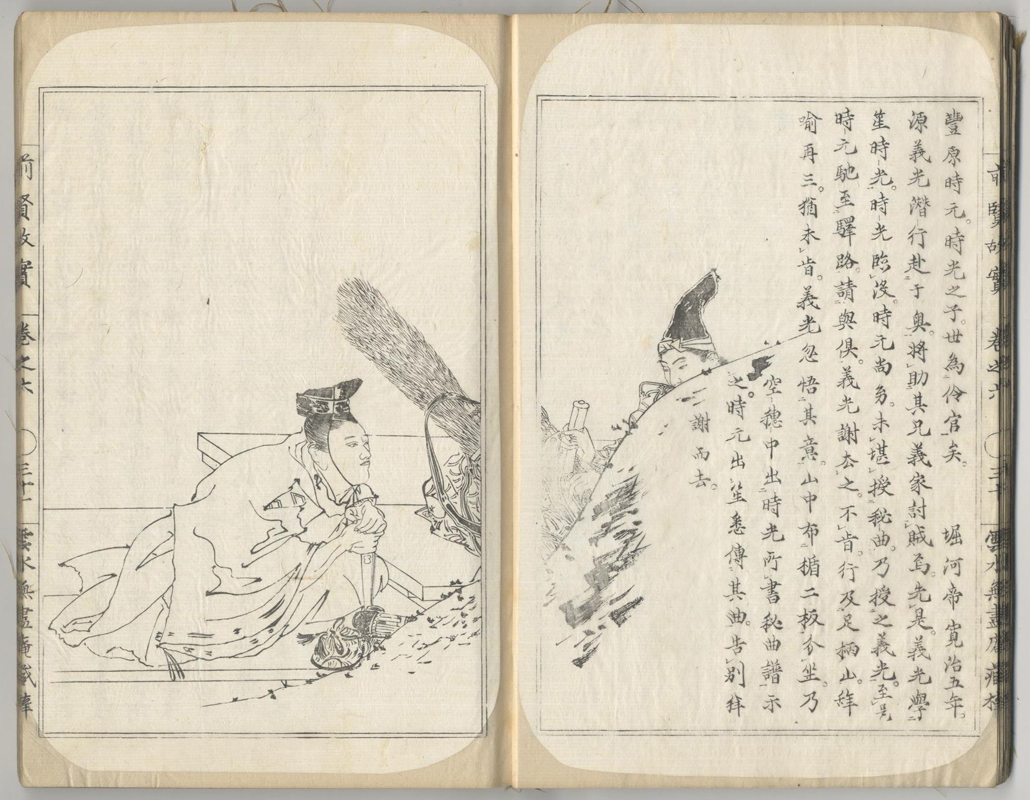 豐原時元。時光之子。世為伶官矣。 堀河帝寛治五年。
源義光潛行赴于奥。將助其兄義家討賊焉。先是。義光學
笙時光。時光臨沒。時元尚幼。未堪授秘曲。乃授之義光。至是
時元馳至驛路。請與倶。義光謝去之。不肯。行及足柄山。辞
喻再三。猶未肯。義光忽悟其意。山中布楯二板分坐。乃
空穗中出時光所書秘曲譜示
之。時元出笙悉傳其曲。告別拜
謝而去。
前賢故實 卷之六 三十
前賢故實 卷之六 三十一